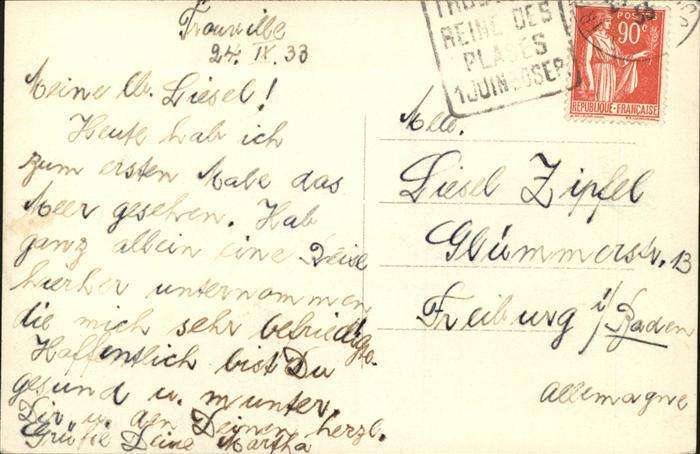 Trouville
24. IX. 33
Meine lb. Liesel!
Heute hab ich
zum ersten Male das
Meer gesehen. Hab
ganz allein eine Reise
hierher unternommen
die mich sehr befriedigte.
Hoffentlich bist Du
gesund u. munter.
Dir u. den Deinen herzl.
Grüße Deine Martha
REINE DES
PLAGES
1 JUIN
POSTES
90c
RÉPUBLIQUE FRANÇAISE
Mlle.
Liesel Zipfel
Glümmerstr. 13
Freiburg i/Baden
Allemagne